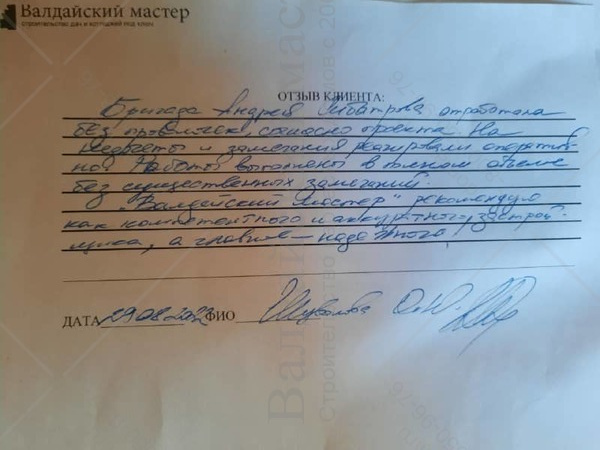 Валдайский мастер
строительство дач и коттеджей под ключ
ОТЗЫВ КЛИЕНТА:
Бригада Андрея отработала
без проволочек, согласно проекта. На
недочеты и замечания реагировали оператив-
но. Работы выполнены в полном объеме
без существенных замечаний.
"Валдайский Мастер" рекомендую
как компетентного и аккуратного застрой-
щика, а главное – надежного!
ДАТА 29.08.2022 ФИО Шувалова О.Ю.